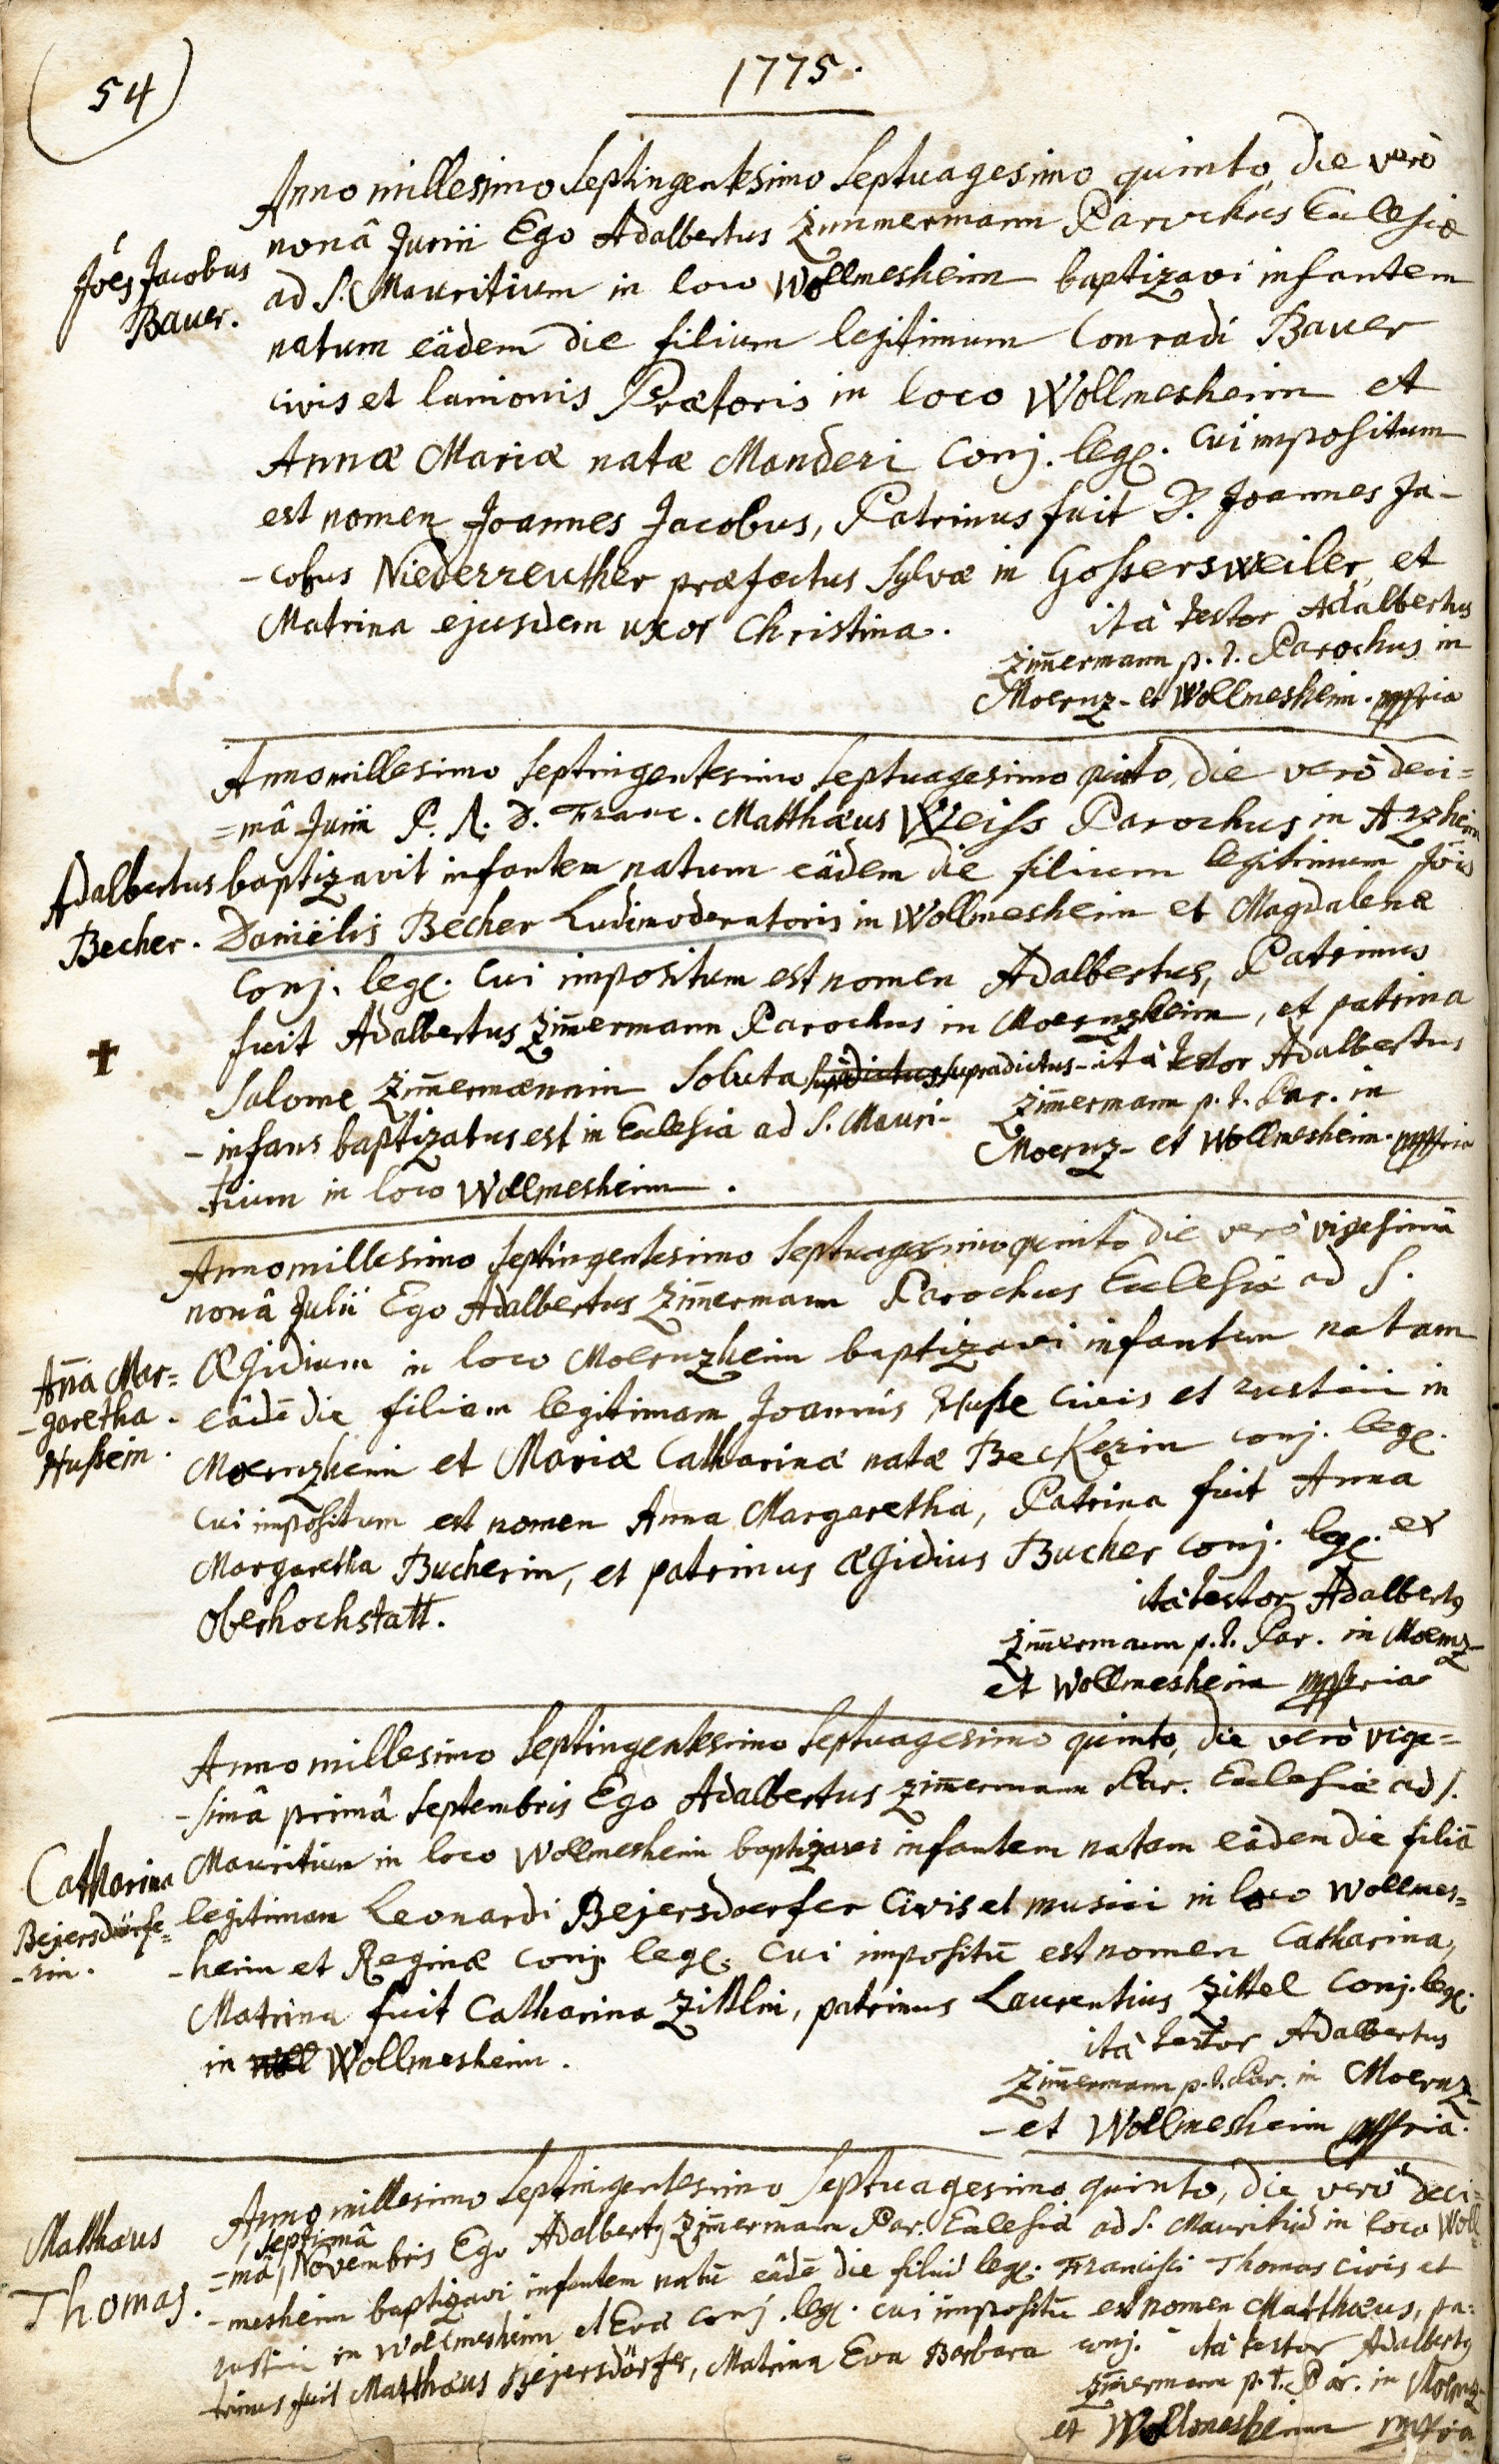 54
1775.
Anno millesimo septingentesimo septuagesimo quinto, die verò
nonâ Junii Ego Adalbertus Zimmermann Parochus Eclesiæ
Jöes Jacobus
Bauer.
ad S. Mauritium in loco Wollmesheim baptizavi infantem
natum eâdem die filium legitimum Conradi Bauer
civis et lanionis Prætoris in loco Wollmesheim et
Annæ Mariæ natæ Manderi conj. leg. cui impositum
est nomen Joannes Jacobus, Patrinus fuit D. Joannes Ja-
-cobus Niederreuther præfectus sylvæ in Gossersweiler, et
Matrina ejusdem uxor Christina.
ità testor Adalbertus
Zim̄ermann p. t. Parochus in
Moernz- et Wollmesheim. mppria
Anno millesimo septingentesimo septuagesimo quinto, die verò deci=
=mâ Junii P. R. D. Franc. Matthæus Weiss Parochus in Arzheim
Adalbertus
Becher.
baptizavit infantem natum eâdem die filium legitimum Jöis
Daniëlis Becher Ludimoderatoris in Wollmesheim et Magdalenæ
conj. leg. cui impositum est nomen Adalbertus, Patrinus
fuit Adalbertus Zim̄ermann Parochus in Moernzheim, et patrina
Salome Zim̄ermænnin soluta supradictus supradictus-
-infans baptizatus est in Eclesia ad S. Mauri-
-tium in loco Wollmesheim.
ità testor Adalbertus
Zim̄ermann p. t. Par. in
Moernz- et Wollmesheim. mppria
Anno millesimo septingentesimo septuagesimo quinto die verò vigesimâ
nonâ Julii Ego Adalbertus Zim̄ermann Parochus Eclesiæ ad S.
An̄a Mar=
-garetha.
Hussein.
Ægidium in loco Moernzheim baptizavi infantem natam
eâdē die filiam legitimam Joannis Husse civis et rustici in
Moernzheim et Mariæ Catharinæ natæ Beckerin conj. leg.
cui impositum est nomen Anna Margaretha, Patrina fuit Anna
Margaretha Bucherin, et patrinus Ægidius Bucher conj. leg. ex
Oberhochstatt.
ità testor Adalbertg
Zim̄ermann p. t. Par. in Moernz-
et Wollmesheim mppria
Anno millesimo septingentesimo septuagesimo quinto, die verò vige=
-simâ primâ septembris Ego Adalbertus Zim̄ermann Par. Eclesiæ ad S.
Catharina
Bejersdörfe=
-rin.
Mauritium in loco Wollmesheim baptizavi infantem natam eâdem die filiā
legitimam Leonardi Bejersdoerfer civis et musici in loco Wollmes=
-heim et Reginæ conj. leg. cui impositū est nomen Catharina,
Matrina fuit Catharina Zittlin, patrinus Laurentius Zittel conj. leg.
in Woll Wollmesheim.
ità testor Adalbertus
Zim̄ermann p. t. Par. in Moernz-
-et Wollmesheim mppria.
Matthæus
Thomas.
Anno millesimo septingentesimo septuagesimo quinto, die verò deci=
septimâ
=mâ Novembris Ego Adalbertg Zim̄ermann Par. Eclesiæ ad S. Mauritiū in loco Woll=
-mesheim baptizavi infantem natū eâdē die filiū leg. Francisci Thomas civis et
rustici in Wollmesheim et Evæ conj. leg. cui impositū est nomen Matthæus, pa=
-trinus fuit Matthæus Bejersdörfer, Matrina Eva Barbara conj.
ità testor Adalbertg
Zim̄ermann p. t. Par. in Moernz-
et Wollmesheim mppria